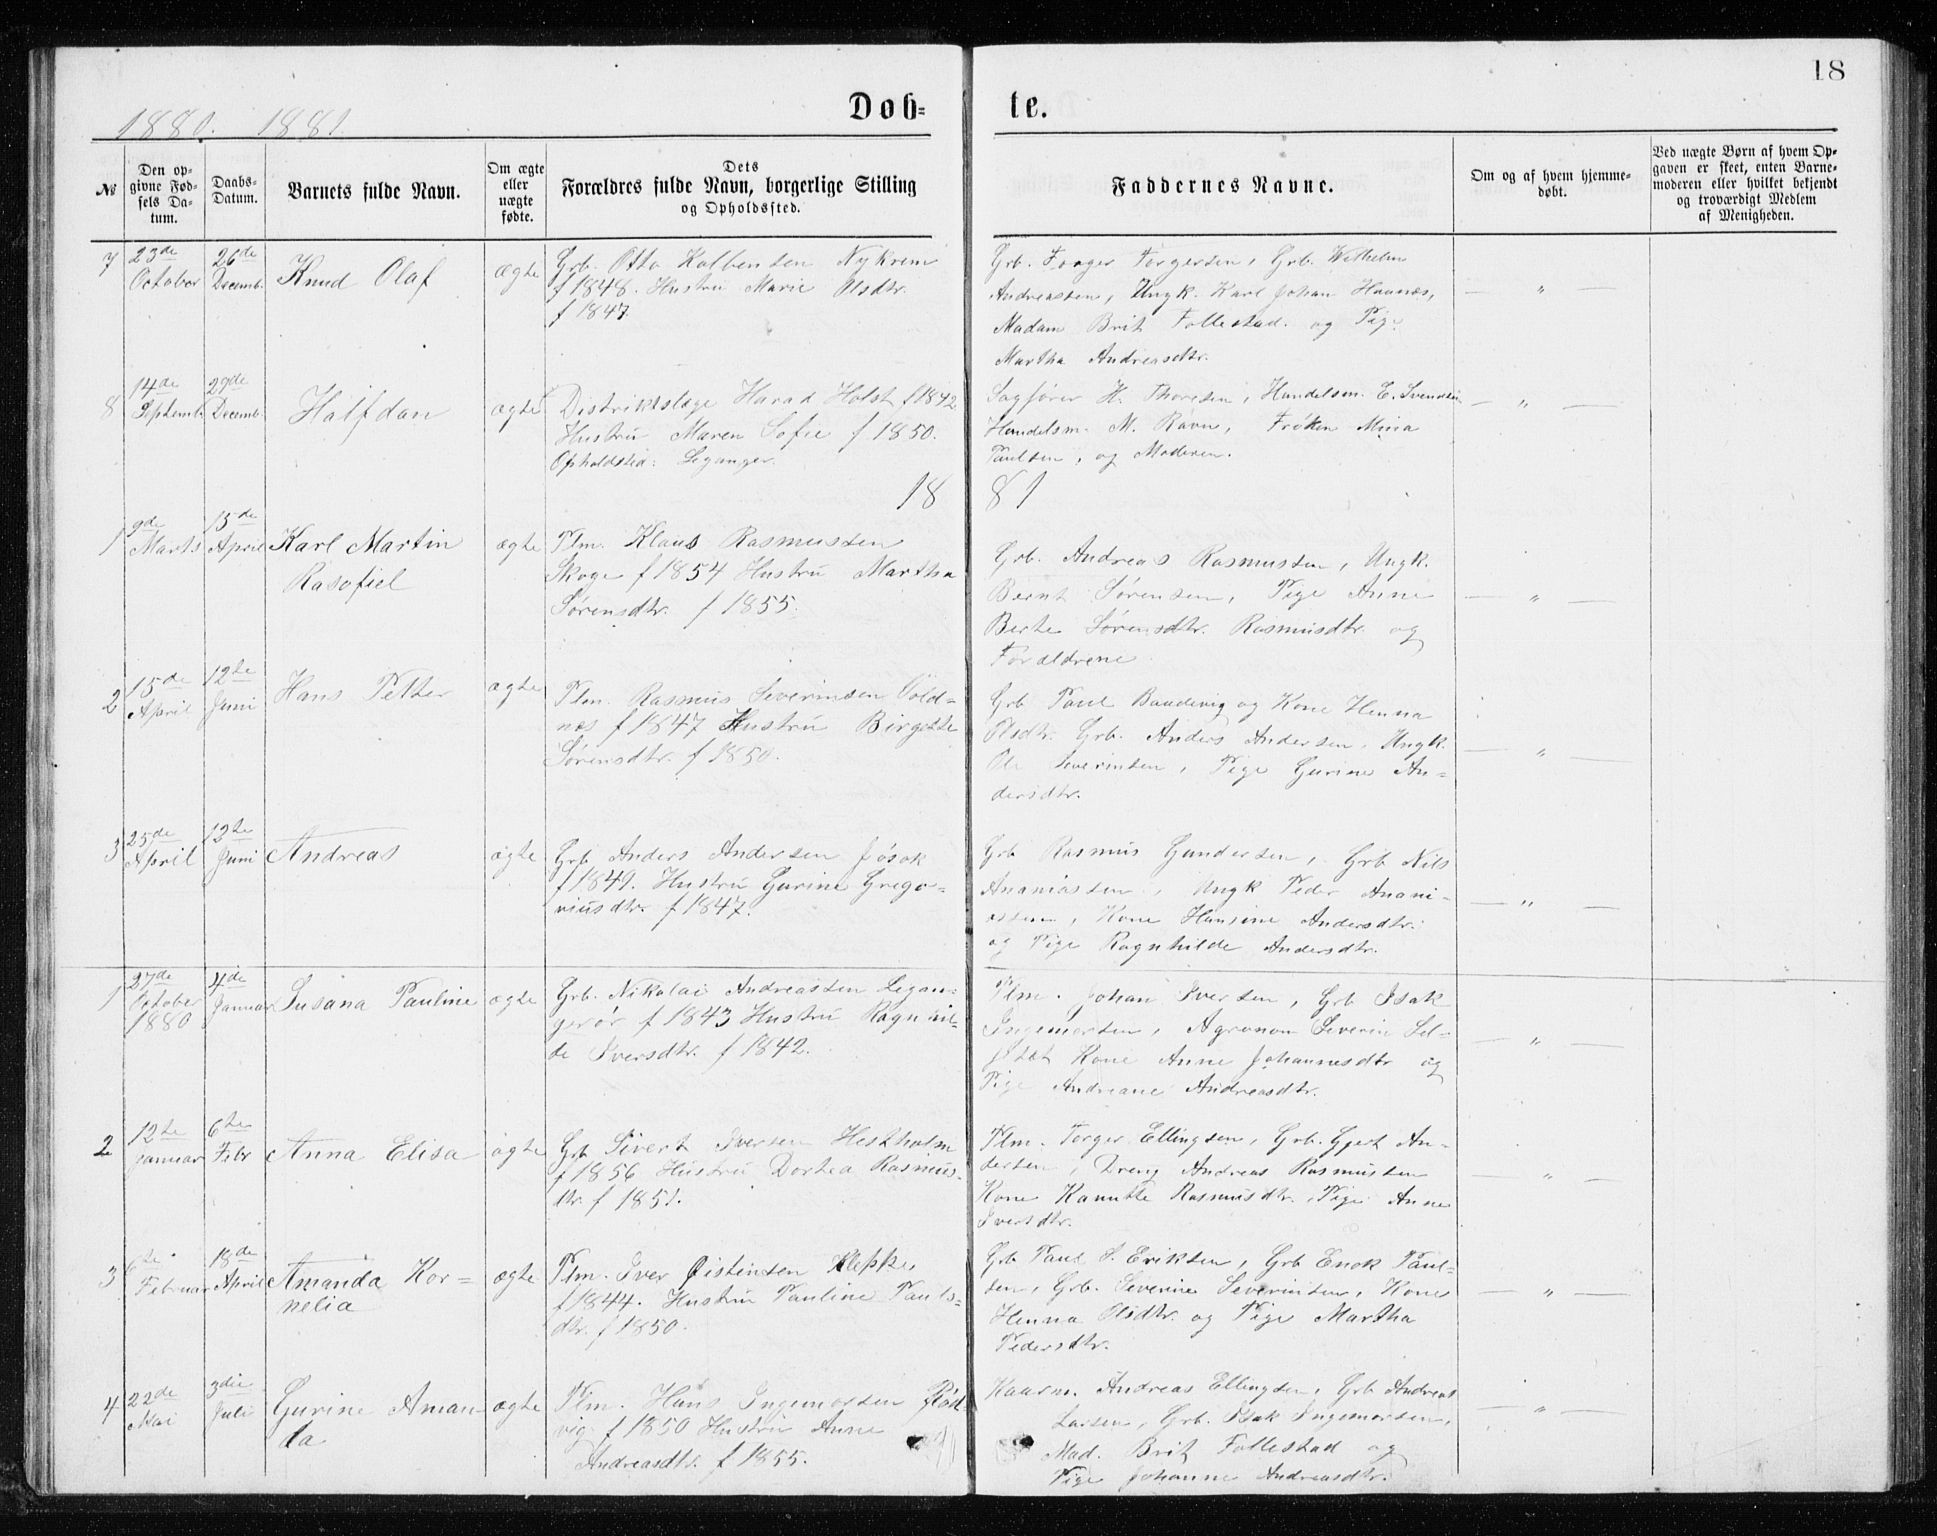 18
1880. 1881.
Døb=
te.
№
Den op-
givne Fød-
sels Da-
tum.
Daabs-
Datum.
Barnets fulde Navn.
Om ægte
eller
uægte
fødte.
Dets
Forældres fulde Navn, borgerlige Stilling
og Opholdssted.
Faddernes Navne.
Om og af hvem hjemme-
døbt.
Ved uægte Børn af hvem Op-
gaven er skeet, enten Barne-
moderen eller hvilket bekjendt
og troværdigt Medlem
af Menigheden.
7
23de
October
26de
Decemb.
Knud Olaf
ægte
Grb. Otto Kolbensen Nykrem
f 1848. Hustru Marie Olsdtr.
f 1847.
Grb. Torger Torgersen, Grb. Wilhelm
Andreassen, Ungk. Karl Johan Haanæs,
Madam Brit Follestad. og Pige
Martha Andreasdtr.
— " —
8
14de
Septemb.
29de
Decemb.
Halfdan
ægte
Distriktslæge Harad Holst f 1842
Hustru Maren Sofie f 1850.
Opholdsted: Leganger.
Sagfører H. Thoresen, Handelsm. E. Svendsen
Handelsm. M. Ravn, Frøken Mina
Paulsen, og Moderen.
— " —
18 81
1
9de
Marts
15de
April
Karl Martin
Rasofiel
ægte
Plm. Klaus Rasmussen
Skoge f 1854 Hustru Martha
Sørensdtr. f 1855.
Grb. Andreas Rasmussen, Ungk.
Bernt Sørensen, Pige Anne
Berte Sørensdtr. Rasmusdtr. og
Forældrene
— " —
2
15de
April
12te
Juni
Hans Petter
ægte
Plm. Rasmus Severinsen Vold-
nes f 1847 Hustru Birgitte
Sørensdtr. f 1850.
Grb Paul Baudevig og Kone Henna
Olsdtr. Grb. Anders Andersen, Ungk.
Ole Severinsen, Pige Gurine An-
dersdtr.
— " —
3
25de
April
12te
Juni
Andreas
ægte
Grb Anders Andersen Jøsok
f 1849. Hustru Gurine Grego-
riusdtr. f 1847.
Grb Rasmus Gundersen, Grb Nils
Ananiassen, Ungk Peder Anani-
assen, Kone Hansine Andersdtr.
og Pige Ragnhilde Andersdtr.
— " —
1
27de
October
1880
4de
Januar
Susana Pauline
ægte
Grb. Nikolai Andreassen Legan-
gerør f 1843 Hustru Ragnhil-
de Iversdtr. f 1842.
Plm. Johan Iversen, Grb Isak
Ingemorsen, Agronom Severin Sel-
Kone Anne Johannesdtr og
Pige Andreane Andreasdtr.
— " —
2
12te
Januar
6te
Febr
Anna Elisa
ægte
Grb Sivert Iversen Hestholm
f 1856 Hustru Dortea Rasmus-
dtr. f 1851.
Plm. Torger Ellingsen, Grb. Gjert An-
dersen, Dreng Andreas Rasmussen
Kone Kanutte Rasmusdtr. Pige Anne
Iversdtr.
— " —
3
6te
Februar
18de
April
Amanda Kor-
nelia
ægte
Plm. Iver Øistensen Kleppe
f 1844. Hustru Pauline Pauls-
dtr. f 1850.
Grb Paul S. Eriksen, Grb Enok Paul-
sen, Grb. Severine Severinsen, Kone
Henna Olsdtr. og Pige Martha
Pedersdtr.
— " —
4
22de
Mai
3die
Juli
Gurine Aman
da
ægte
Plm. Hans Ingemorsen Flød-
vig f 1850 Hustru Anne
Andreasdtr. f 1855.
Kaarm. Andreas Ellingsen, Grb Andreas
Larsen, Grb. Isak Ingemorsen,
Mad. Brit Follestad og
Pige Johanne Andreasdtr.
— " —